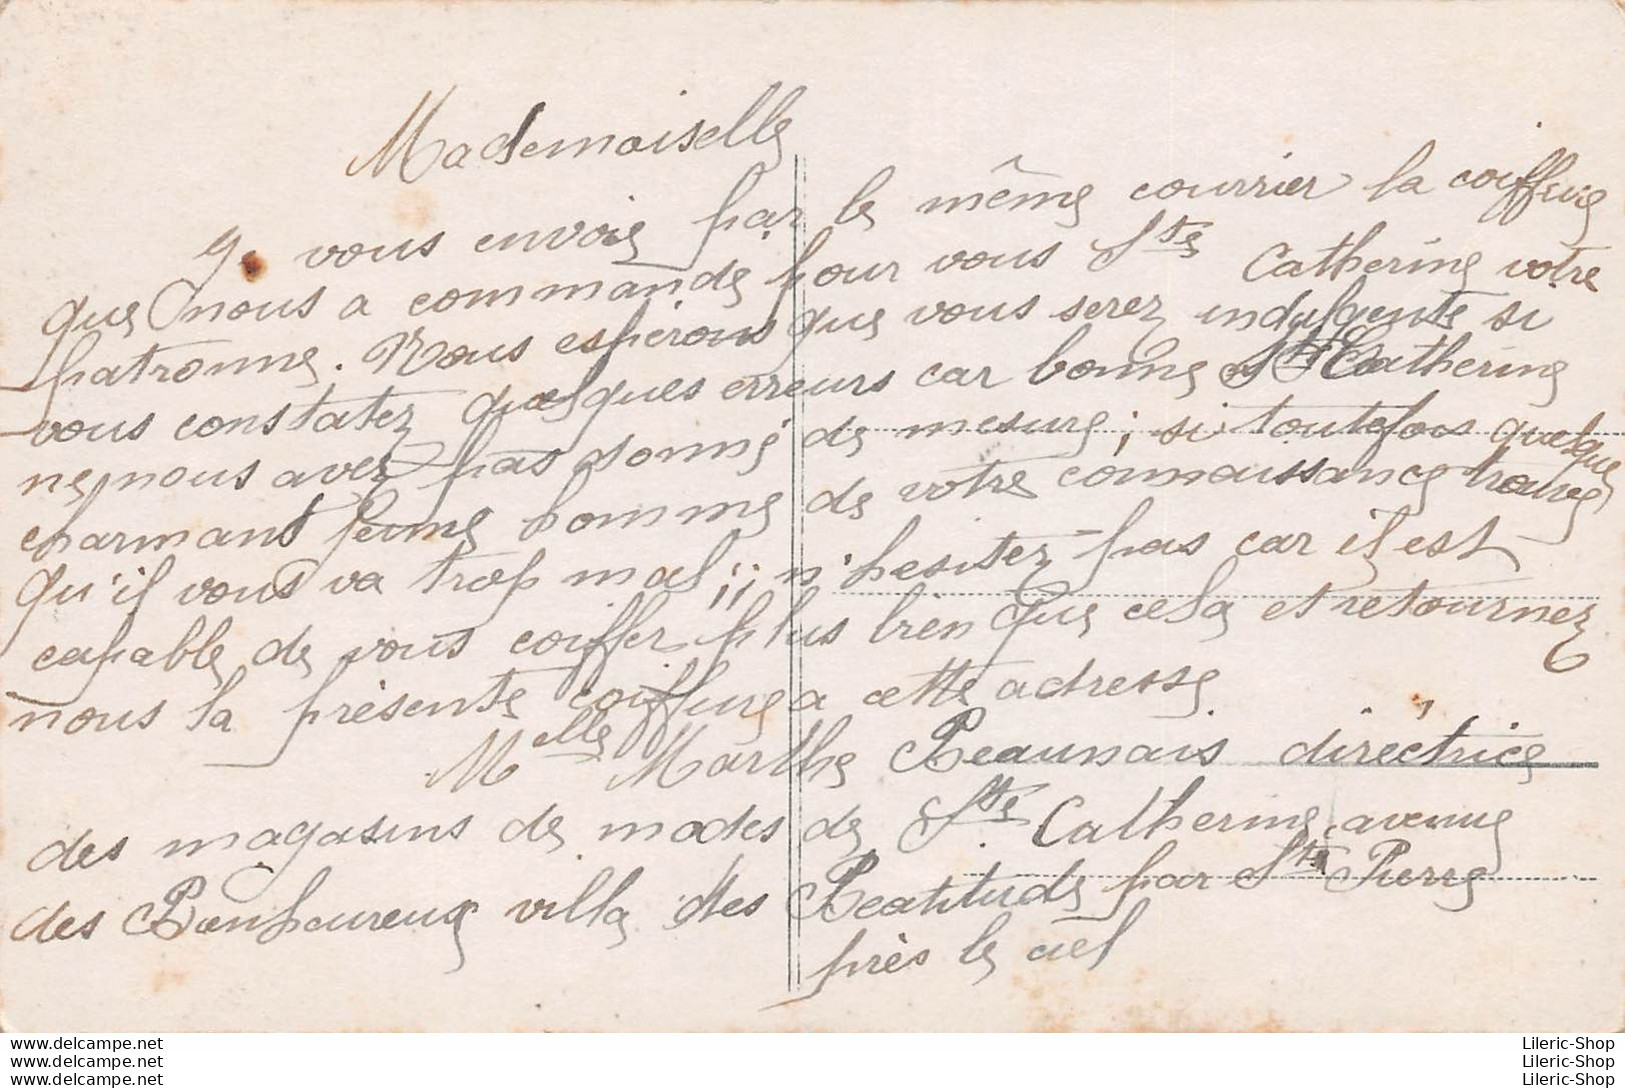 Mademoiselle
Je vous envoie par le même courrier la coiffure
que nous a commande pour vous Ste Catherine votre
patronne. Nous espérons que vous serez indulgente si
vous constatez quelques erreurs car bonne Ste Catherine
ne nous avez pas donné de mesure; si toutefois quelque
charmant jeune homme de votre connaissance trouve
qu'il vous va trop mal ;; n'hesitez pas car il est
capable de vous coiffer plus bien que cela et retournez
nous la présente coiffure a cette adresse
Melle Marthe Beaunais directrice
des magasins de modes de Ste Catherine, avenue
des Bienheureux villa des Beatitude par St Pierre
près le ciel
delcampe.net
delcampe.net
delcampe.net
Lileric-Shop
Lileric-Shop
Lileric-Shop